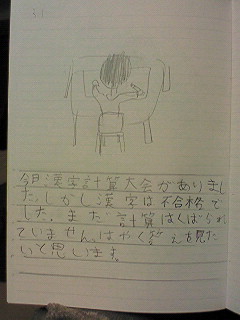 今日漢字計算大会がありまし
た。しかし漢字は不合格で
した。まだ計算はくばられ
ていません。はやく答えを見た
いと思います。